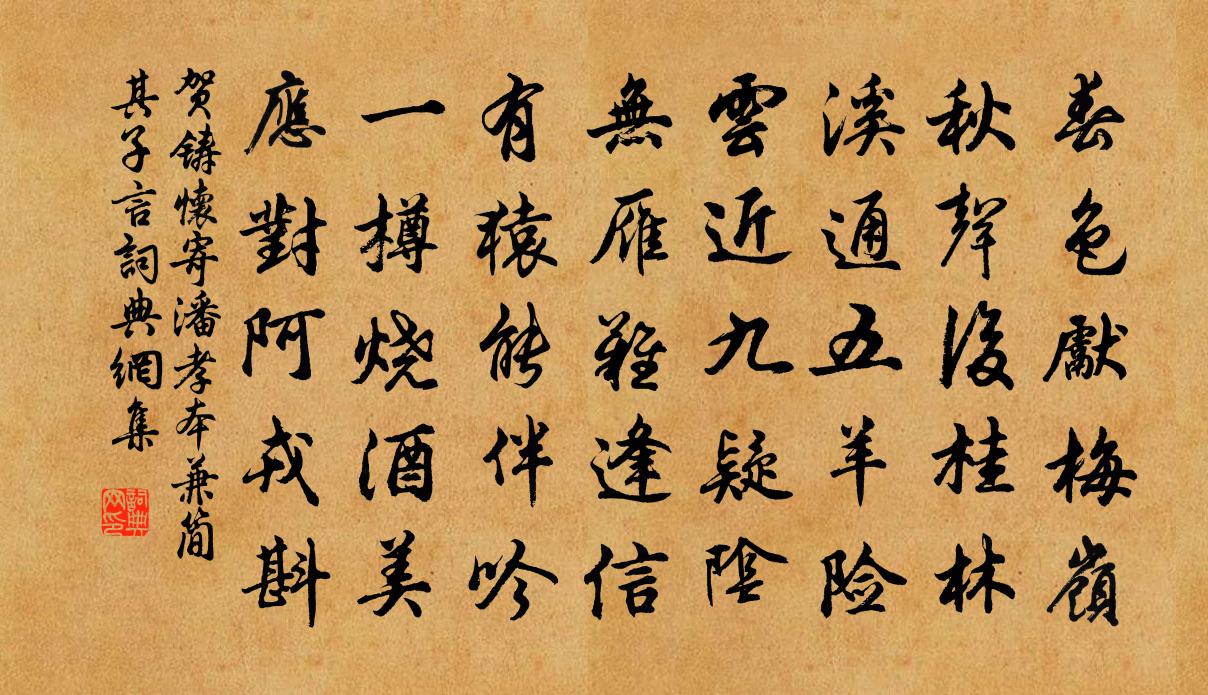 春色獻梅嶺
秋聲後桂林
溪通五羊險
雲近九疑陰
無雁難逢信
有猿能伴吟
一樽燒酒美
應對阿戎斟
賀鑄懷寄潘孝本兼簡
其子言詞典網集
詞典網印